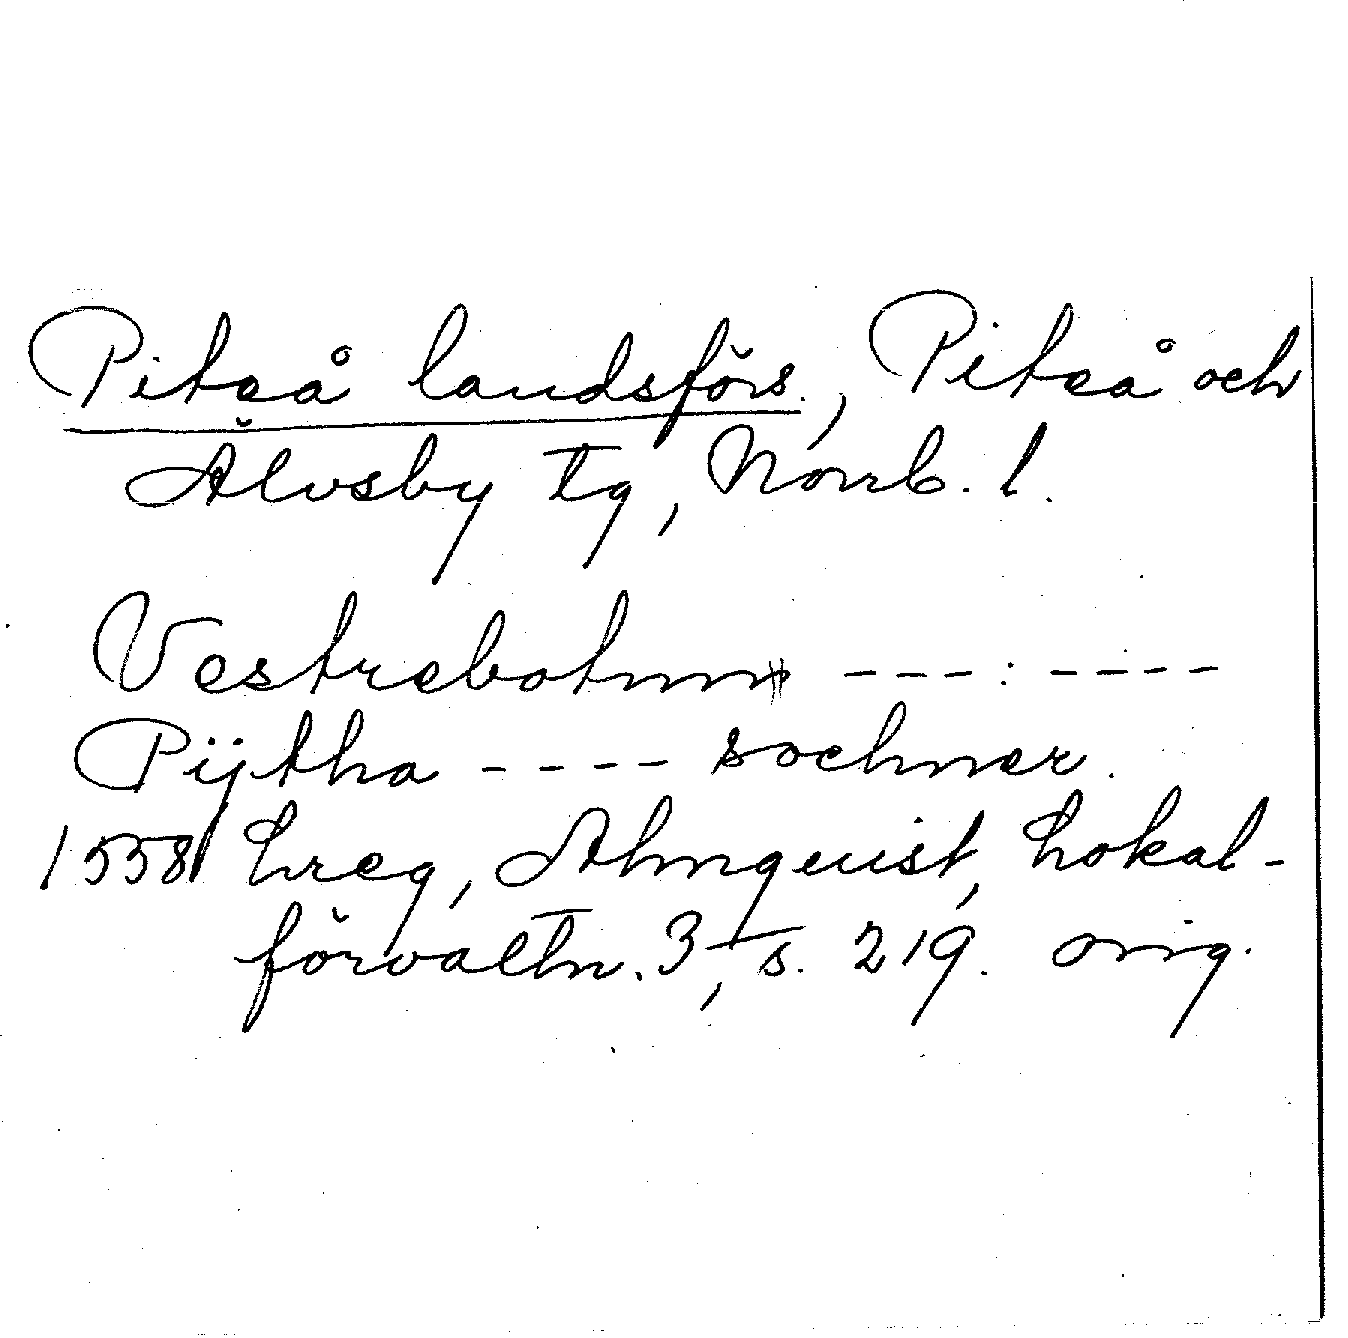 Piteå landsförs., Piteå och
Älvsby tg, Norrb. l.
Vestrebotnnn ---:----
Pijtha ---- sochner.
1558 Lreg, Almquist, Lokal-
förvaltn. 3, s. 219. orig.